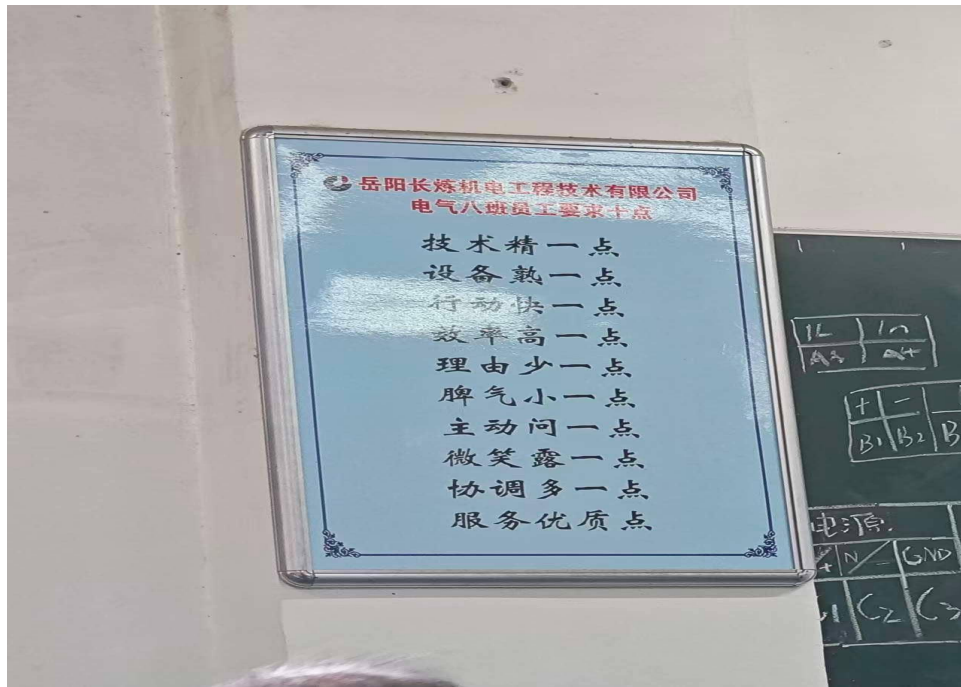 岳阳长炼机电工程技术有限公司
电气八班员工要求十点
技术精一点
设备熟一点
行动快一点
效率高一点
理由少一点
脾气小一点
主动问一点
微笑露一点
协调多一点
服务优质点
1L 1n
A3 A4
+ -
B1 B2 B
电源
+ N/- GND
C2 C3